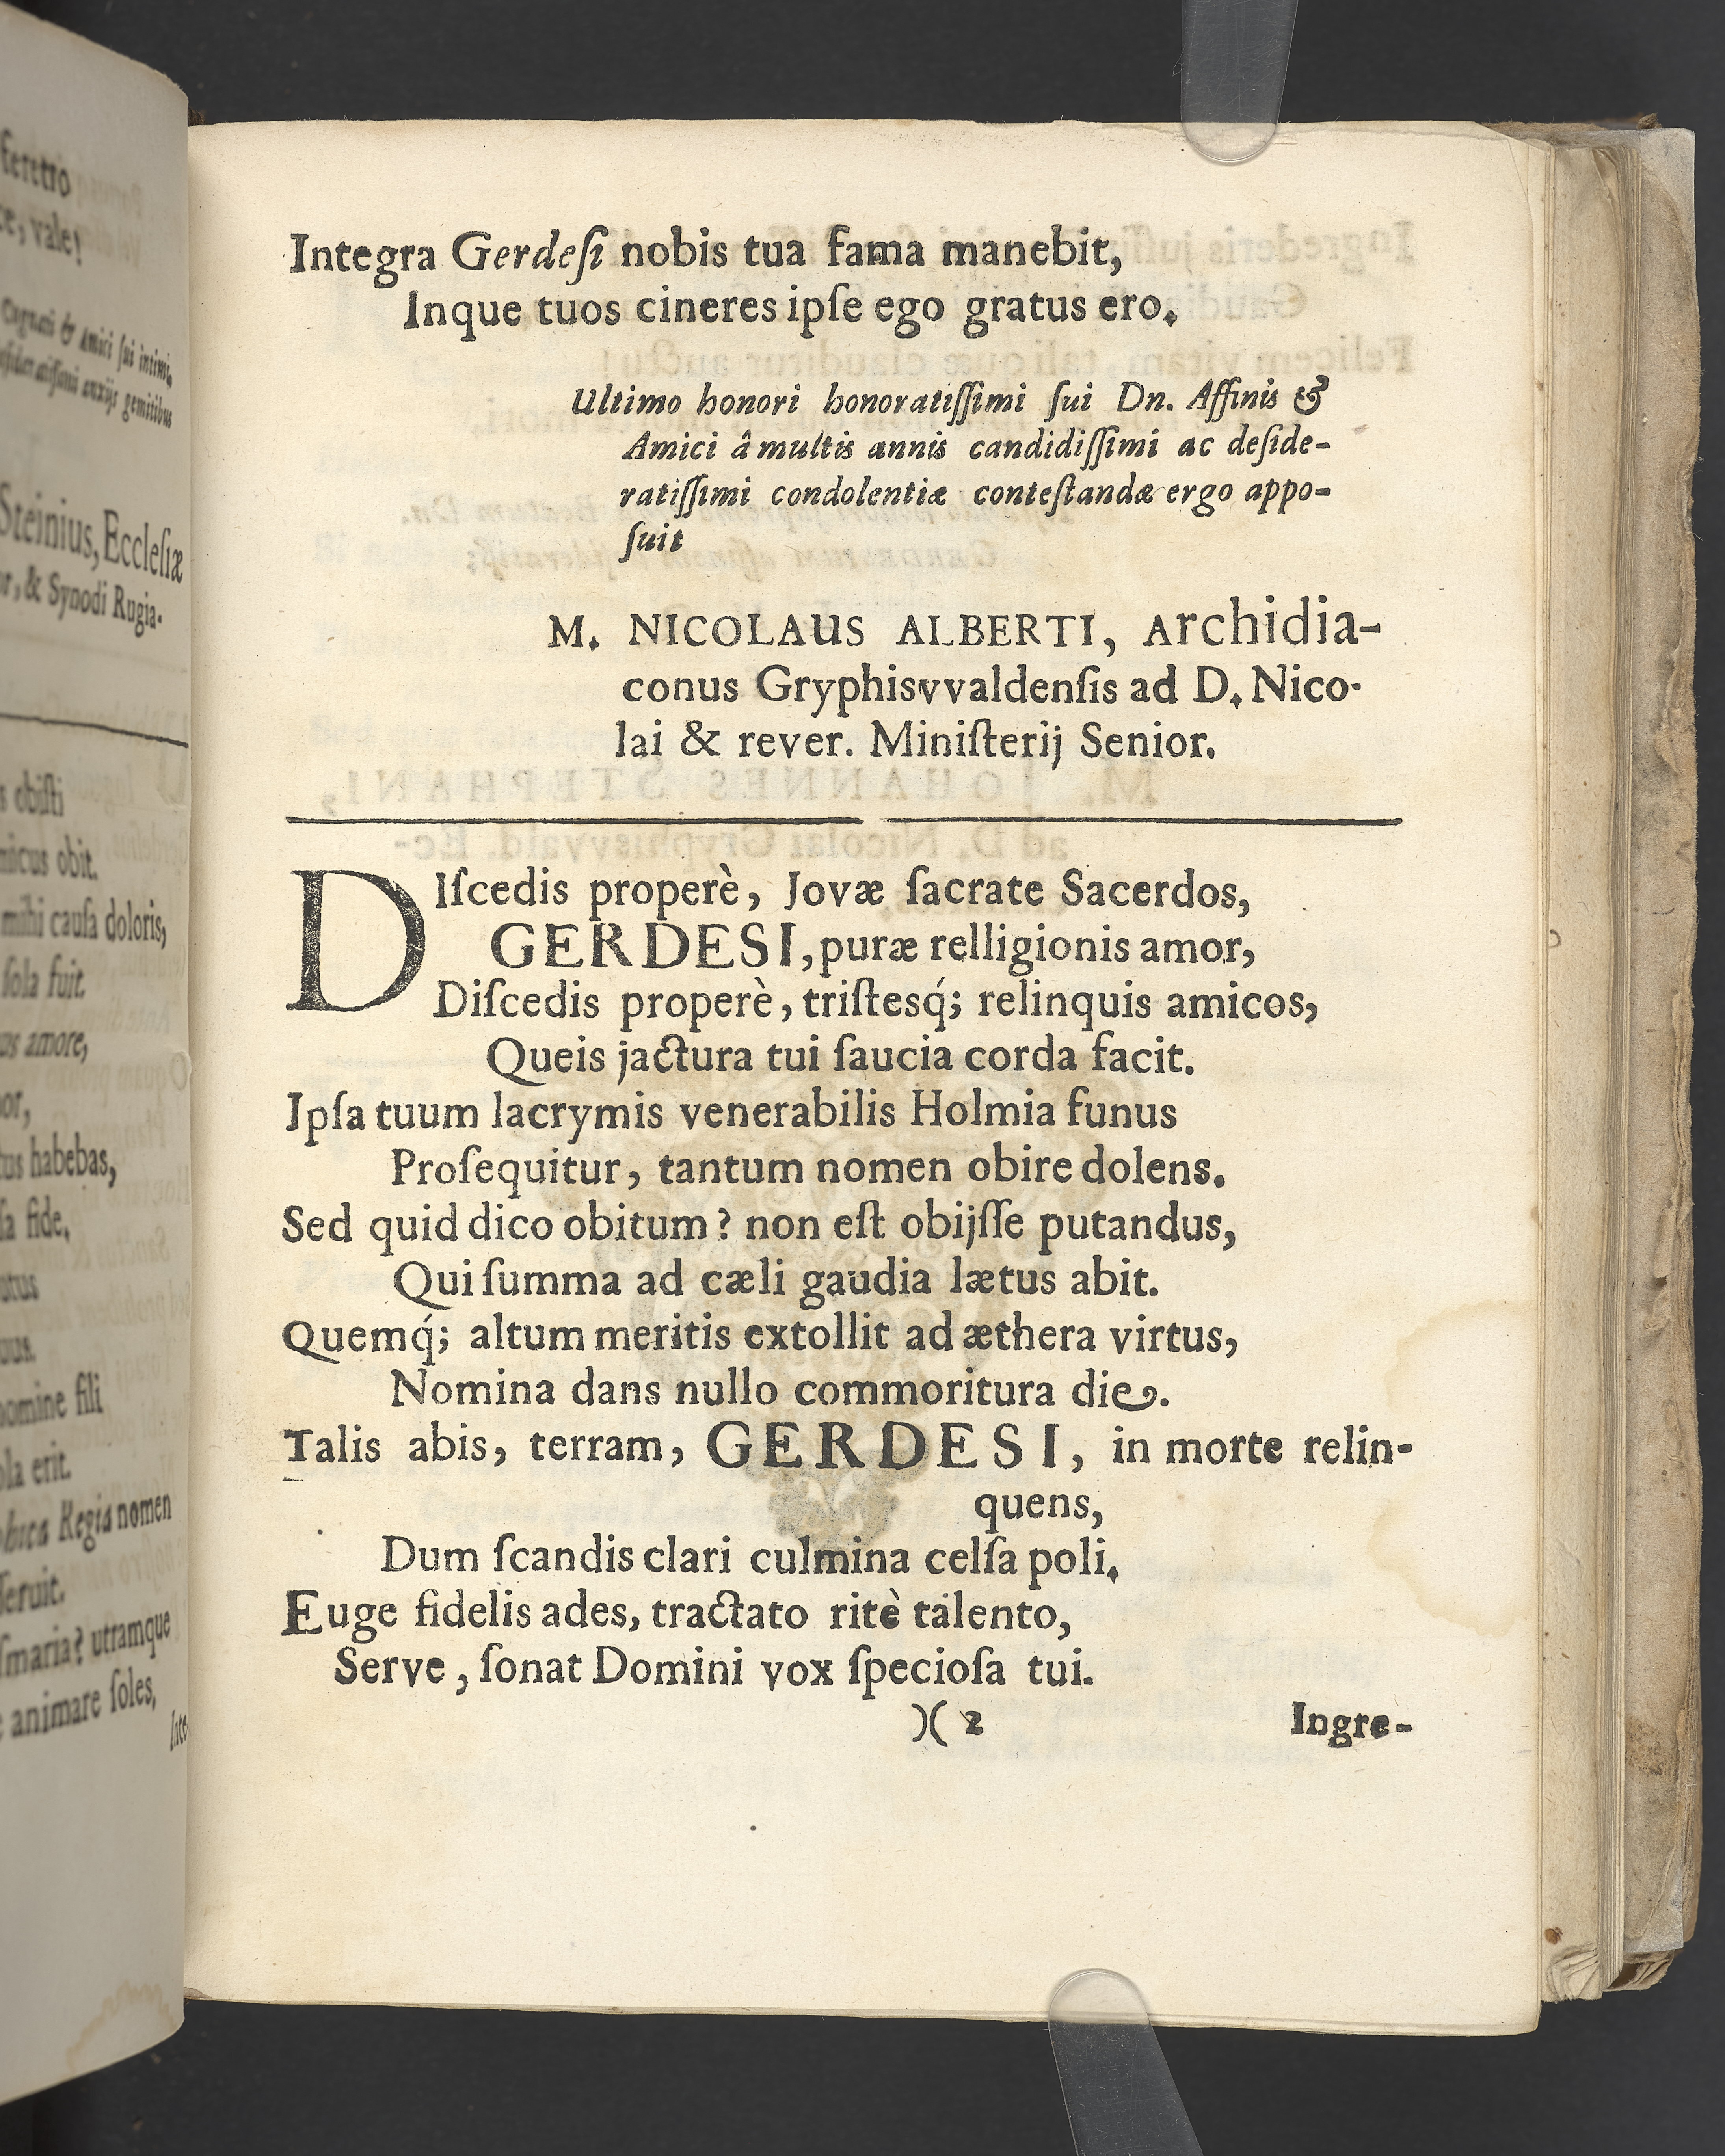 feretro
vale!
Cognati & Amici ſui intimi,
anxijs gemitibus
Steinius, Eccleſiæ
& Synodi Rugia-
obiſti
obit.
mihi cauſa doloris,
ſola fuit.
amore,
habebas,
fide,
nomine fili
erit.
Regia nomen
utramque
animare ſoles,
Integra Gerdeſi nobis tua fama manebit,
Inque tuos cineres ipſe ego gratus ero.
Ultimo honori honoratiſſimi ſui Dn. Affinis &
Amici â multis annis candidiſſimi ac deſide-
ratiſſimi condolentiæ conteſtandæ ergo appo-
ſuit
M. NICOLAUS ALBERTI, Archidia-
conus Gryphisvvaldenſis ad D. Nico-
lai & rever. Miniſterij Senior.
DIſcedis properè, Jovæ ſacrate Sacerdos,
GERDESI, puræ relligionis amor,
Diſcedis properè, triſtesq́; relinquis amicos,
Queis jactura tui ſaucia corda facit.
Ipſa tuum lacrymis venerabilis Holmia funus
Proſequitur, tantum nomen obire dolens.
Sed quid dico obitum? non eſt obijſſe putandus,
Qui ſumma ad cæli gaudia lætus abit.
Quemq́; altum meritis extollit ad æthera virtus,
Nomina dans nullo commoritura die.
Talis abis, terram, GERDESI, in morte relin-
quens,
Dum ſcandis clari culmina celſa poli.
Euge fidelis ades, tractato ritè talento,
Serve, ſonat Domini vox ſpecioſa tui.
)( 2
Ingre-